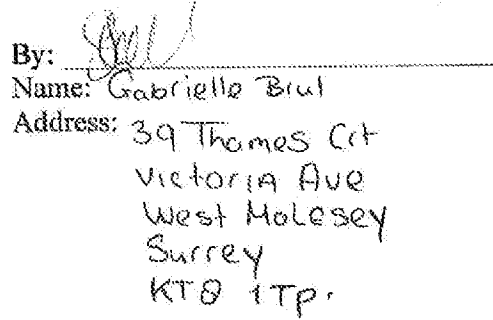 By:
Name: Gabrielle Brul
Address: 39 Thames Crt
Victoria Ave
West Molesey
Surrey
KT8 1TP.